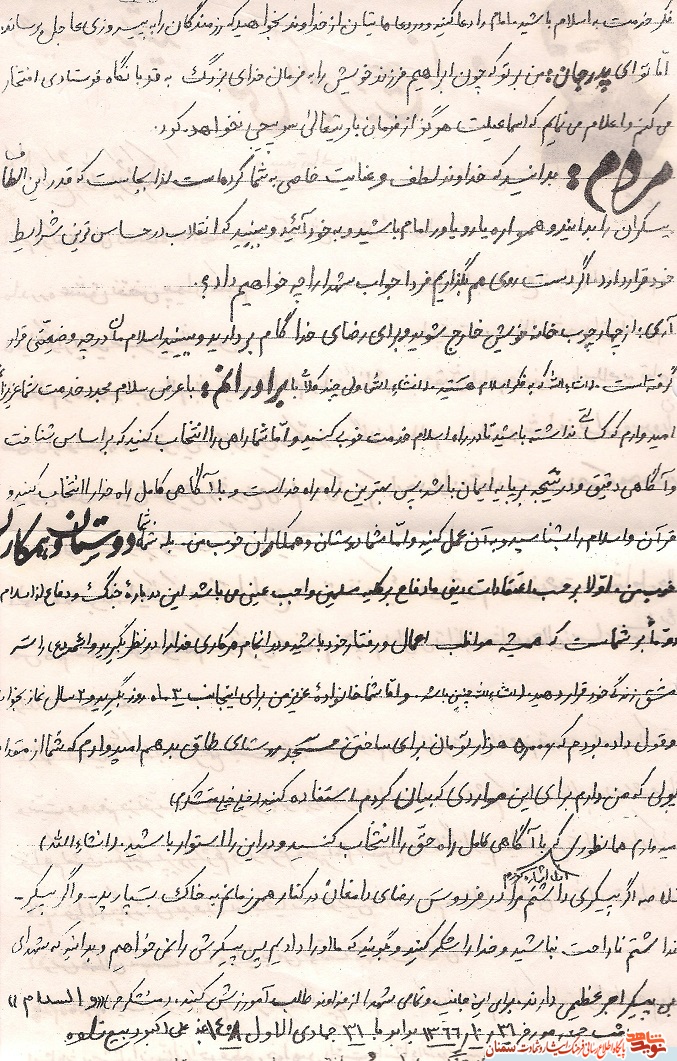 فکر خدمت به اسلام باشید. امام را دعا کنید و در دعاهایتان از خداوند بخواهید که رزمندگان را به پیروزی عاجل برساند.
امّا تو ای پدر جان: من بر تو که چون ابراهیم فرزند خویش را به فرمان خدای بزرگ به قربانگاه فرستادی افتخار
می کنم و اعلام می نمایم که اسماعیلت هرگز از فرمان باریتعالی سرپیچی نخواهد کرد.
مردم: بدانید که خداوند لطف و عنایت خاصی به شما کرده است لذا بجاست که قدر این الطاف
بیکران را بدانید و همواره یار و یاور امام باشید و به خود آئید و ببینید که انقلاب در حساس ترین شرایط
خود قرار دارد اگر دست روی هم بگذاریم فردا جواب شهدا را چه خواهیم داد؟
آری: از چهارچوب خانه خویش خارج شوید و برای رضای خدا گام بردارید و ببینید اسلام مان در چه وضعیّتی قرار
گرفته است. انشاءالله که به فکر اسلام هستید. انشاءالله ولی چند کلام با برادرانم: با عرض سلام مجدد خدمت شما عزیزان
امیدوارم که کسالتی نداشته باشید تا در راه اسلام خدمت خوب کنید و امّا شما راهی را انتخاب کنید که بر اساس شناخت
و آگاهی دقیق و در نتیجه بر پایه ایمان باشد پس بهترین راه راه خداست و با آگاهی کامل راه خدا را انتخاب کنید و
قرآن و اسلام را بشناسید و به آن عمل کنید و امّا شما دوستان و همکاران خوب من. بله شما شما دوستان و همکاران
خوب من. اولا بر حسب اعتقادات دینی ما دفاع بر کلیه مسلمین واجب عینی می باشد این درباره جنگ و دفاع از اسلام
دوّماً بر شماست که همیشه مواظب اعمال و رفتار خود باشید و در انجام هر کاری خدا را در نظر بگیرید و ائمه (ع) را سر
مشق زندگی خود قرار دهید. انشاءالله چنین باشد. و امّا شما خانواده عزیز من برای اینجانب ۳ ماه روزه بگیرید و ۲ سال نماز بخوانید
و قول داده بودم که ۵۰۰۰ هزار تومان برای ساختن مسجد روستای طاق بدهم امیدوارم که شما از مقدار
پولی که من دارم برای این مواردی که بیان کردم استفاده کنید (خیلی خیلی متشکرم)
امیدوارم همانطوری که با آگاهی کامل راه حقّ را انتخاب کنید و در این را استوار باشید. (انشاءالله)
اولا اشاره کردم
خلاصه اگر پیکری داشتم مرا در فردوس رضای دامغان در کنار همرزمانم به خاک بسپارید- و اگر پیکر-
نداشتم ناراحت نباشید و خدا را شکر کنید و بگویید که ما او را دادیم پس پیکرش را نمی خواهیم و بدانید که شهدای
بی پیکر اجر عظیمی دارند. برای این جانب و تمامی شهدا از خداوند طلب آمرزش کنید. متشکرم. ((والسلام))
شب جمعه مورخ ۱۳۶۶ برابر با ۲۱ جمادی الاول ۱۴۰۸ علی اکبر ربیع
نوید شاهد
پایگاه اطلاع رسانی فرهنگ ایثار و شهادت سمنان